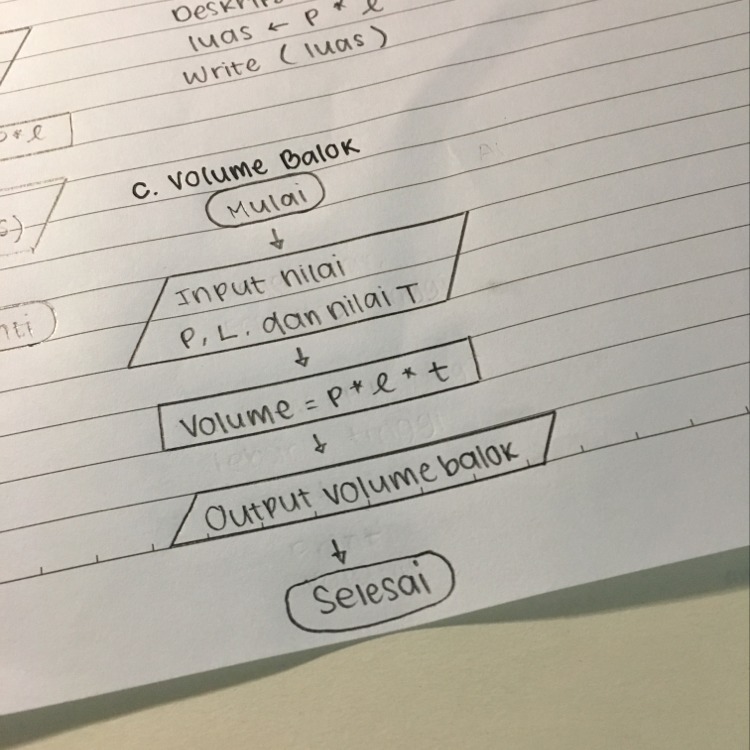 luas ← p * l
Write (luas)
* l
C. Volume Balok
Mulai
Input nilai
P, L. dan nilai T
Volume = p * l * t
Output volume balok
Selesai